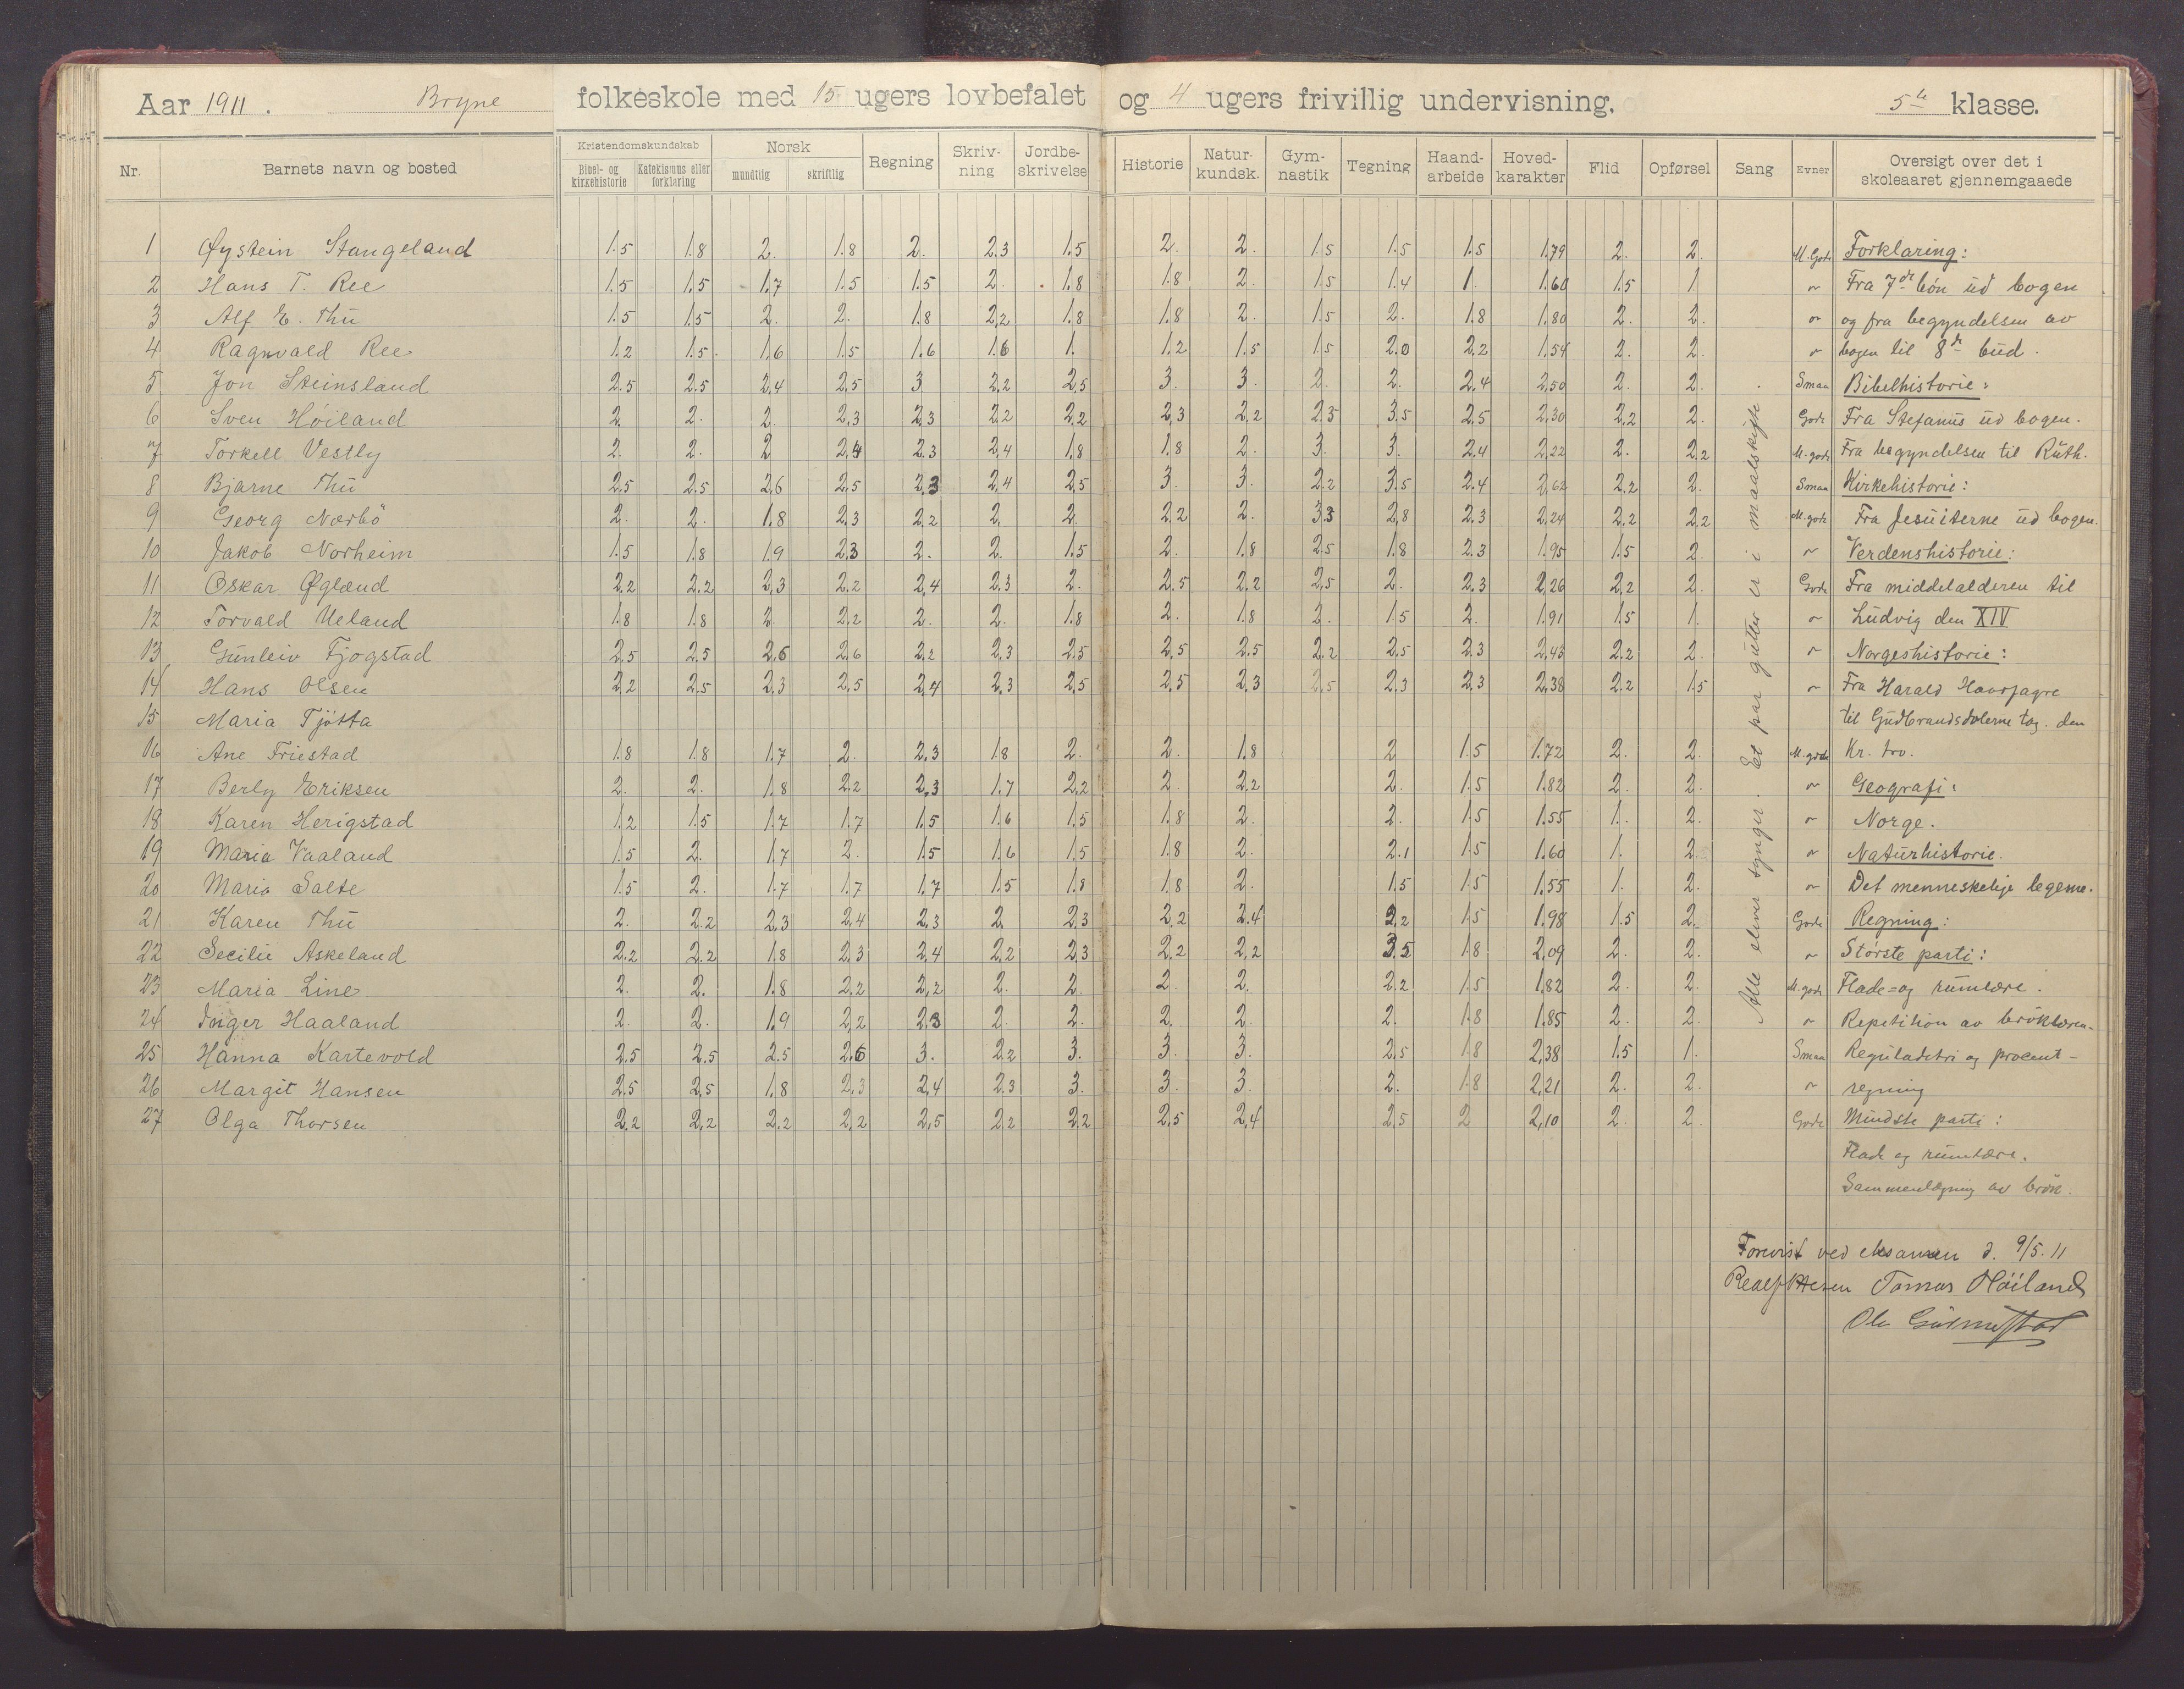 Aar 1911. Bryne folkeskole med 15 ugers lovbefalet og 4 ugers frivillig undervisning. 5te klasse.
Nr. Barnets navn og bosted Kristendomskundskab Bibel- og kirkehistorie Katekismus eller forklaring Norsk mundtlig skriftlig Regning Skrivning Jordbeskrivelse Historie Naturkundsk. Gymnastik Tegning Haandarbeide Hovedkarakter Flid Opførsel Sang Evner Oversigt over det i skoleaaret gjennemgaaede
1 Øystein Stangeland 1.5 1.8 2. 1.8 2. 2.3 1.5 2. 2. 1.5 1.5 1.5 1.79 2. 2. M. Gode Forklaring:
2 Hans T. Ree 1.5 1.5 1.7 1.5 1.5 2. 1.8 1.8 2. 1.5 1.4 1. 1.60 1.5 1 " Fra 7de bön ud bogen
3 Alf E. Thu 1.5 1.5 2. 2. 1.8 2.2 1.8 1.8 2. 1.5 2. 1.8 1.80 2. 2. " og fra begyndelsen av
4 Ragnvald Ree 1.2 1.5 1.6 1.5 1.6 1.6 1. 1.2 1.5 1.5 2.0 2.2 1.54 2. 2. " bogen til 8de bud.
5 Jon Steinsland 2.5 2.5 2.4 2.5 3 2.2 2.5 3. 3. 2. 2. 2.4 2.50 2. 2. Smaa Bibelhistorie:
6 Sven Höiland 2. 2. 2. 2.3 2.3 2.2 2.2 2.3 2.2 2.3 3.5 2.5 2.30 2.2 2. Gode Fra Stefanus ud bogen.
7 Torkell Vestly 2. 2. 2 2.4 2.3 2.4 1.8 1.8 2. 3. 3. 2.4 2.22 2. 2.2 M. gode Fra begyndelsen til Ruth.
8 Bjarne Thu 2.5 2.5 2.6 2.5 2.3 2.4 2.5 3. 3. 2.2 3.5 2.4 2.62 2.2 2. Smaa Kirkehistorie:
9 Georg Nærbö 2. 2. 1.8 2.3 2.2 2. 2. 2.2 2. 3.3 2.8 2.3 2.24 2.2 2.2 M. gode Fra Jesuiterne ud bogen.
10 Jakob Norheim 1.5 1.8 1.9 2.3 2. 2. 1.5 2. 1.8 2.5 1.8 2.3 1.95 1.5 2. " Verdenshistorie:
11 Oskar Øglænd 2.2 2.2 2.3 2.2 2.4 2.3 2. 2.5 2.2 2.5 2. 2.3 2.26 2.2 2. Gode Fra middelalderen til
12 Torvald Ueland 1.8 1.8 2. 2.2 2. 2. 1.8 2. 1.8 2. 1.5 2. 1.91 1.5 1. " Ludvig den XIV
13 Gunleiv Fjogstad 2.5 2.5 2.6 2.6 2.2 2.3 2.5 2.5 2.5 2.2 2.5 2.3 2.43 2.2 2. " Norgeshistorie:
14 Hans Olsen 2.2 2.5 2.3 2.5 2.4 2.3 2.5 2.5 2.3 2.5 2.3 2.3 2.38 2.2 1.5 " Fra Harald Haarfagre
15 Maria Tjötta til Gudbrandsdølerne tog. den
16 Ane Friestad 1.8 1.8 1.7 2. 2.3 1.8 2. 2. 1.8 2 1.5 1.72 2. 2. M. gode Kr. tro.
17 Berly Eriksen 2. 2. 1.8 2.2 2.3 1.7 2.2 2. 2.2 2. 1.5 1.82 2. 2. " Geografi:
18 Karen Herigstad 1.2 1.5 1.7 1.7 1.5 1.6 1.5 1.8 2. 2. 1.5 1.55 1. 2. " Norge.
19 Maria Vaaland 1.5 2. 1.7 2. 1.5 1.6 1.5 1.8 2. 2.1 1.5 1.60 1. 2. " Naturhistorie.
20 Maria Salte 1.5 2. 1.7 1.7 1.7 1.5 1.8 1.8 2. 1.5 1.5 1.55 1. 2. " Det menneskelige legeme.
21 Karen Thu 2. 2.2 2.3 2.4 2.3 2. 2.3 2.2 2.4 2.2 1.5 1.98 1.5 2. Gode Regning:
22 Secilie Askeland 2.2 2.2 1.8 2.3 2.4 2.2 2.3 2.2 2.2 3.5 1.8 2.09 2. 2. " Störste parti:
23 Maria Line 2. 2. 1.8 2.2 2.2 2. 2. 2. 2. 2.2 1.5 1.82 2. 2. M. gode Flade= og rumlære.
24 Inger Haaland 2. 2. 1.9 2.2 2.3 2. 2. 2. 2. 2. 1.8 1.85 2. 2. " Repetition av bröklæren.
25 Hanna Kartevold 2.5 2.5 2.5 2.6 3. 2.2 3. 3. 3. 2.5 1.8 2.38 1.5 1. Smaa Reguladetri og procent-
26 Margit Hansen 2.5 2.5 1.8 2.3 2.4 2.3 3. 3. 3. 2. 1.8 2.21 2. 2. " regning
27 Olga Thorsen 2.2 2.2 2.2 2.2 2.5 2.2 2.2 2.5 2.4 2.5 2 2.10 2. 2. Gode Mindste parti:
Flade og rumlære.
Sammenlægning av brök.
Alle elever synger. Et par gutter er i maalskifte
Forevist ved eksamen d. 9/5. 11
Tomas Höiland
Ole